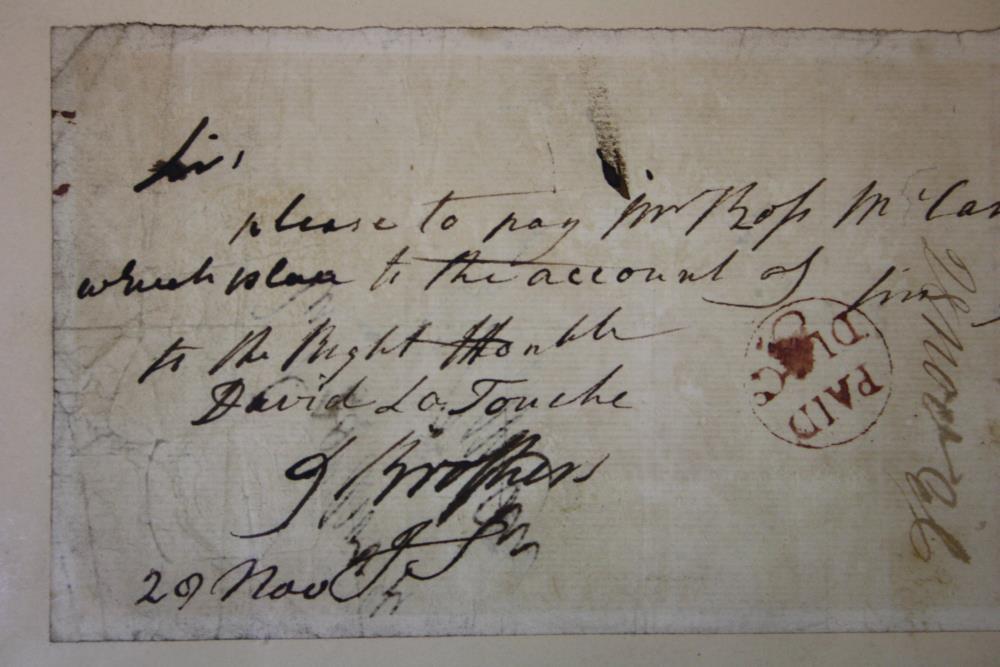 Sir,
please to pay Mr Ross McCan
which place to the account of Sir
to the Right Honble
David La Touche
& Brothers
28 Nov
PAID